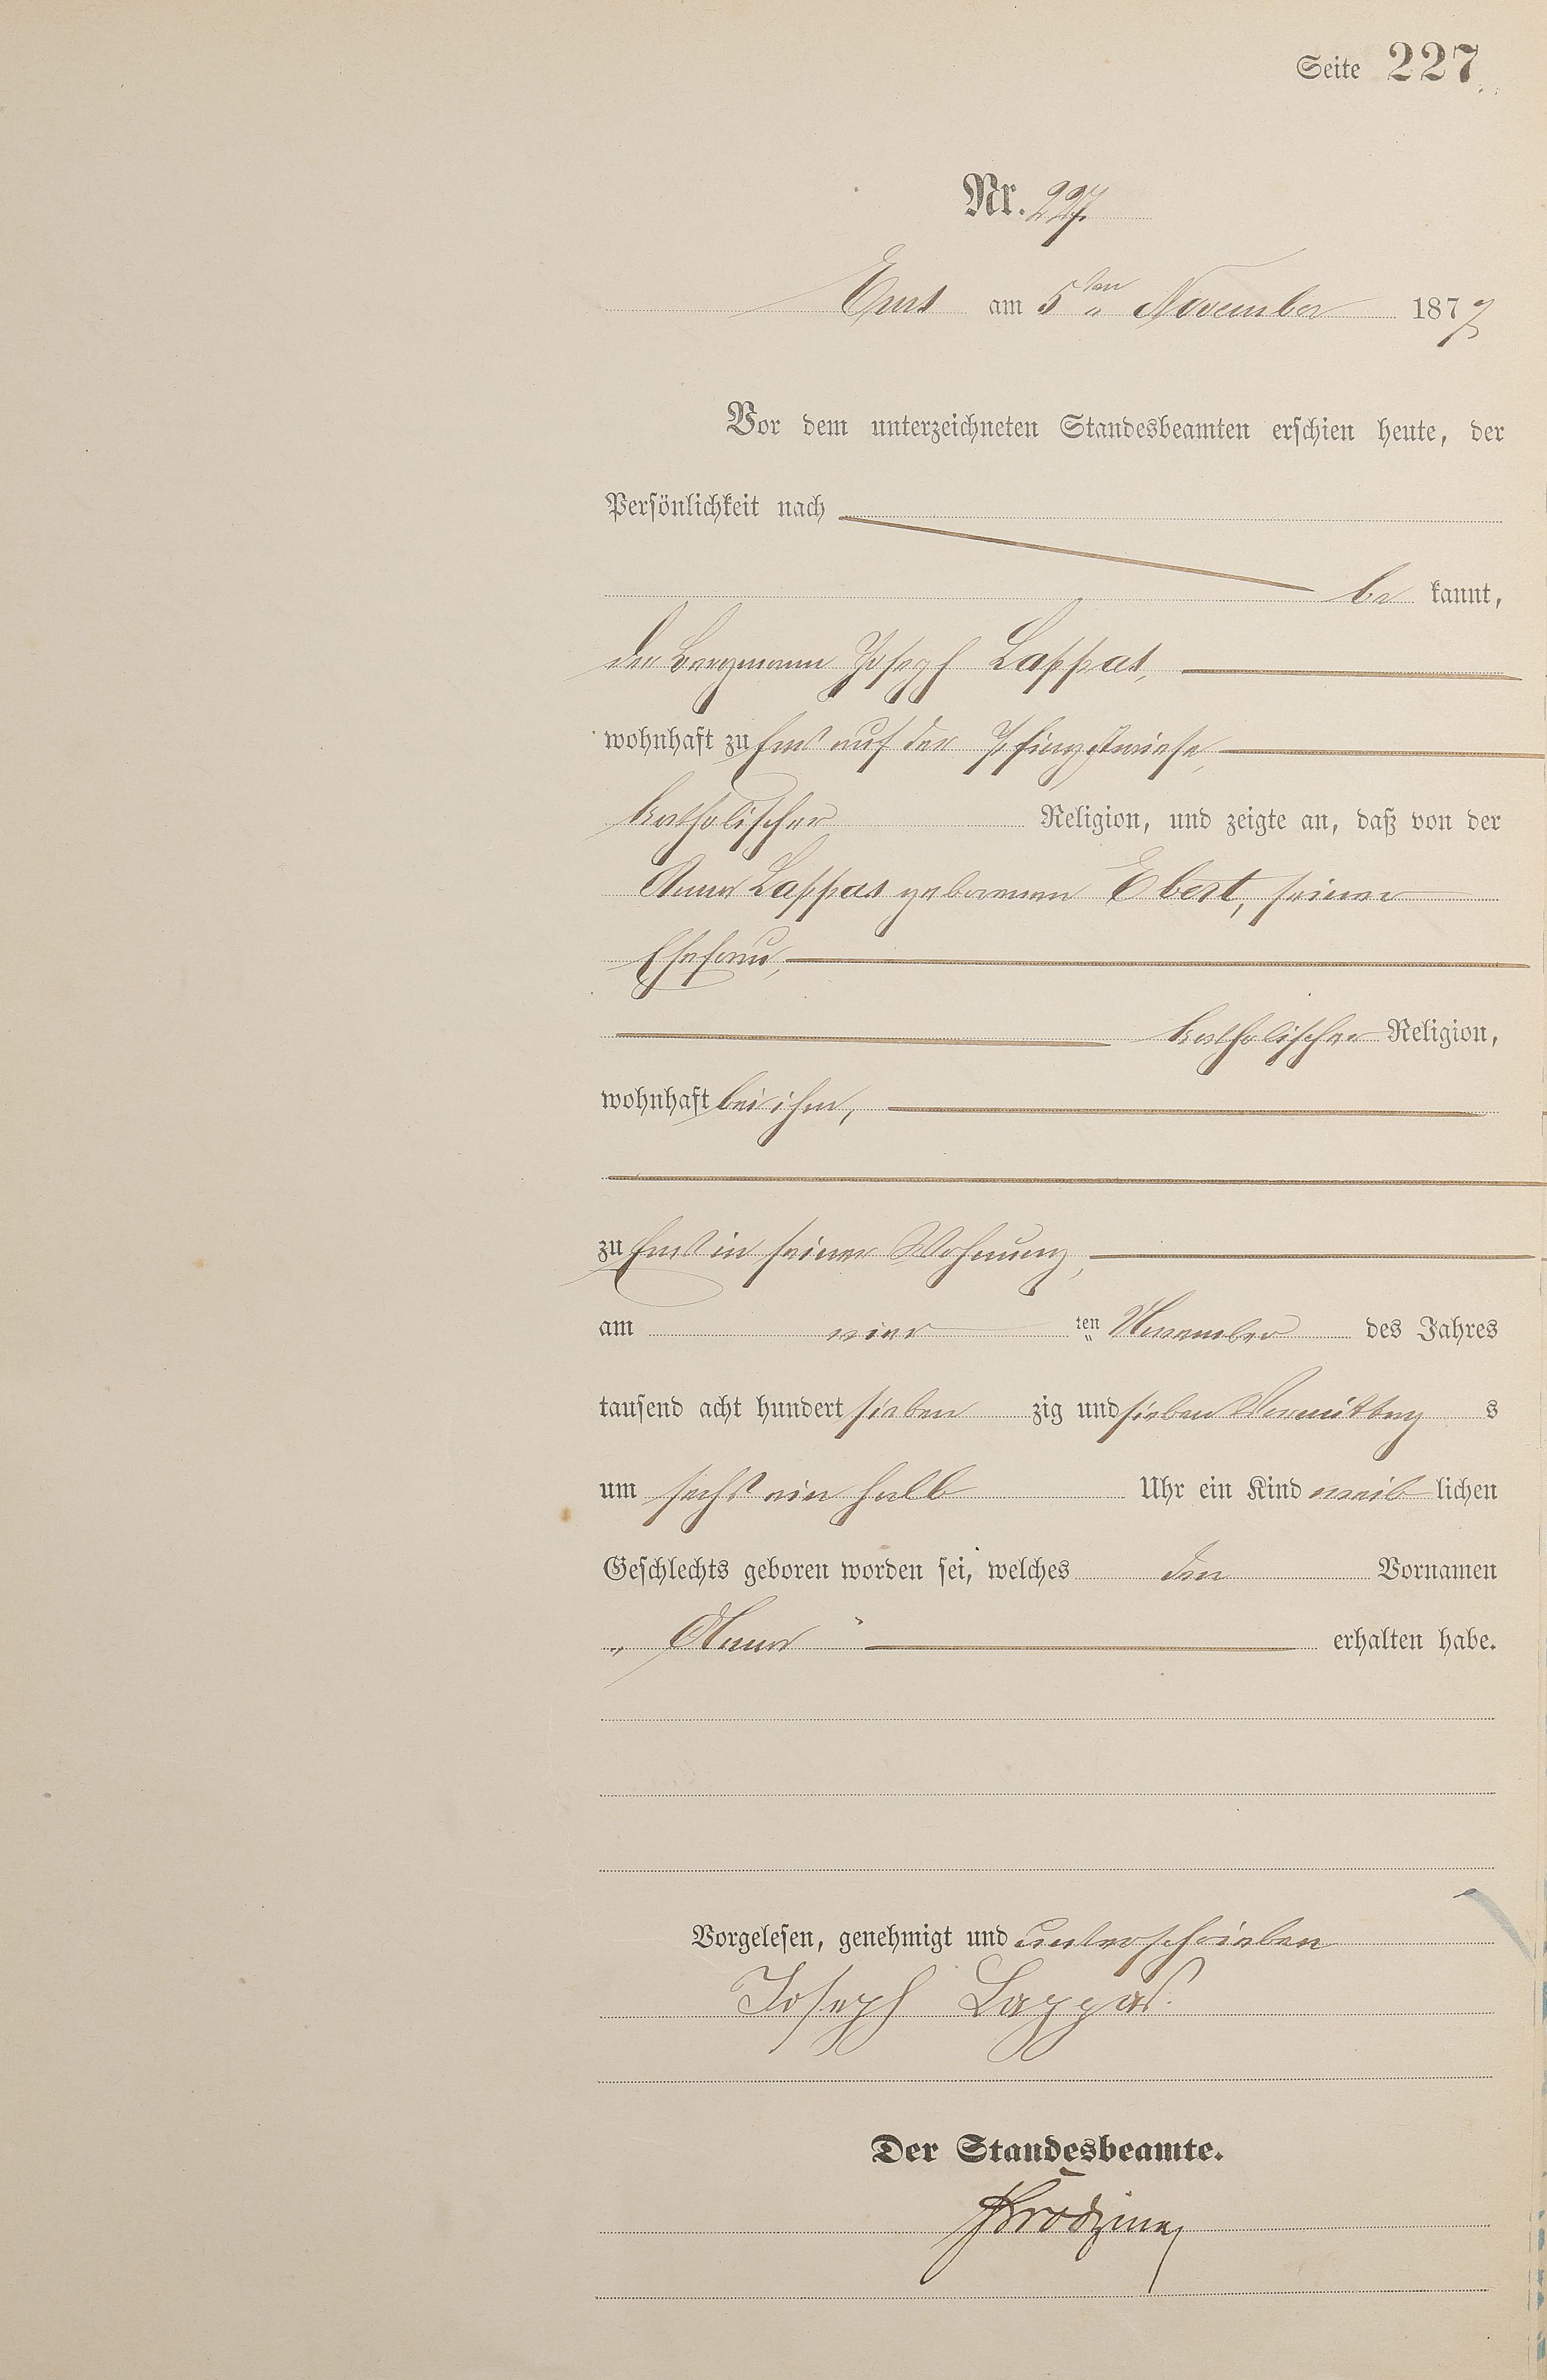 Seite 227
Nr. 227.
Ems am 5ten November 1877
Vor dem unterzeichneten Standesbeamten erschien heute, der
Persönlichkeit nach
be kannt,
der Bergmann Joseph Lappas,
wohnhaft zu Ems auf der Pfingstwiese,
katholischer Religion, und zeigte an, daß von der
Anna Lappas geborenen Ebert, seiner
Ehefrau,
katholischer Religion,
wohnhaft bei ihm,
zu Ems in seiner Wohnung,
am vier ten November des Jahres
tausend acht hundert sieben zig und sieben Vormittag s
um sechs ein halb Uhr ein Kind weib lichen
Geschlechts geboren worden sei, welches den Vornamen
„ Anna “ erhalten habe.
Vorgelesen, genehmigt und unterschrieben
Joseph Lappas.
Der Standesbeamte.